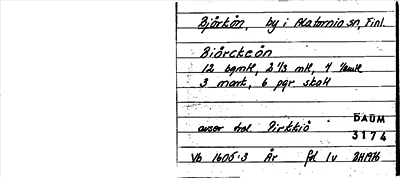 Björkön, by i Alatornio sn, Finl.
Biörckeön
12 bgmtl, 2 1/3 mtl, 4
3 mark, 6 pgr skatt
avser trol. Pirkkiö
DAUM
3174
Vb 1605:3 År fol 1v